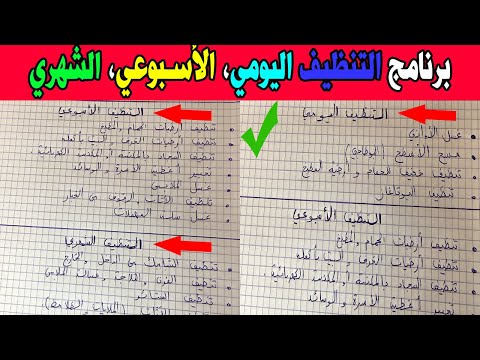 برنامج التنظيف اليومي، الأسبوعي، الشهري
التنظيف اليومي
غسل الأواني
مسح الأسطح
تنظيف خفيف للحمام و أرضية المطبخ
تنظيف البوتاجاز
التنظيف الأسبوعي
تنظيف أرضيات الحمام والمطبخ
تنظيف أرضيات الغرف و البيت بأكمله
تنظيف السجاد بالمكنسة أو المكنسة الكهربائية
تغيير أغطية الأسرة و الوسائد
التنظيف الأسبوعي
تنظيف أرضيات الحمام والمطبخ
تنظيف أرضيات الغرف و البيت بأكمله
تنظيف السجاد بالمكنسة أو المكنسة الكهربائية
تغيير أغطية الأسرة و الوسائد
غسل الملابس
تنظيف الأثاث والرفوف من الغبار
غسل سلة المهملات
التنظيف الشهري
تنظيف الشبابيك من الداخل والخارج
تنظيف الفرن والثلاجة وغسالة الملابس
تنظيف الستائر
تنظيف